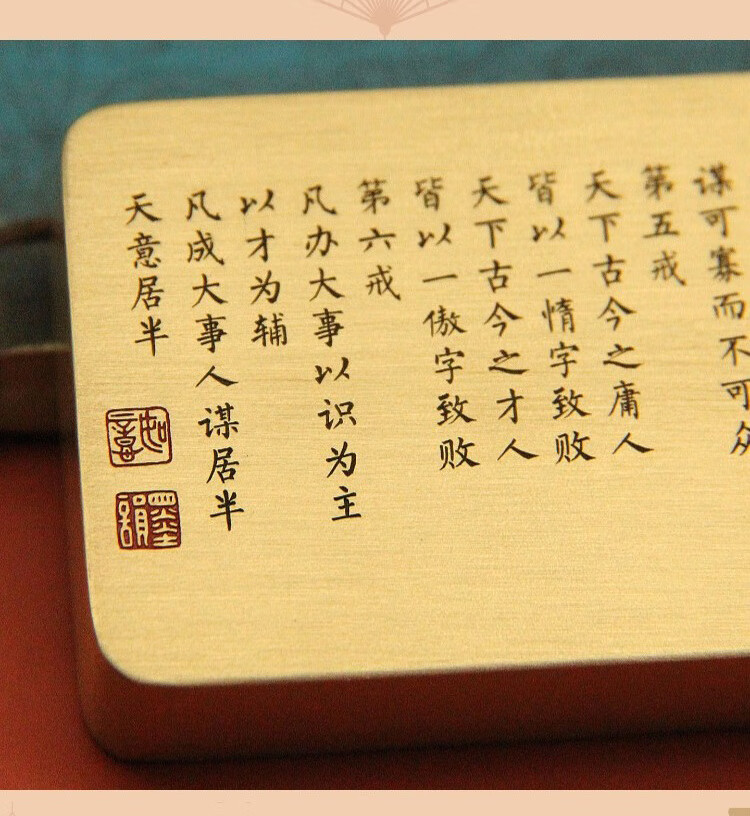 谋可寡而不可众
第五戒
天下古今之庸人
皆以一惰字致败
天下古今之才人
皆以一傲字致败
第六戒
凡办大事以识为主
以才为辅
凡成大事人谋居半
天意居半
如意
墨韻